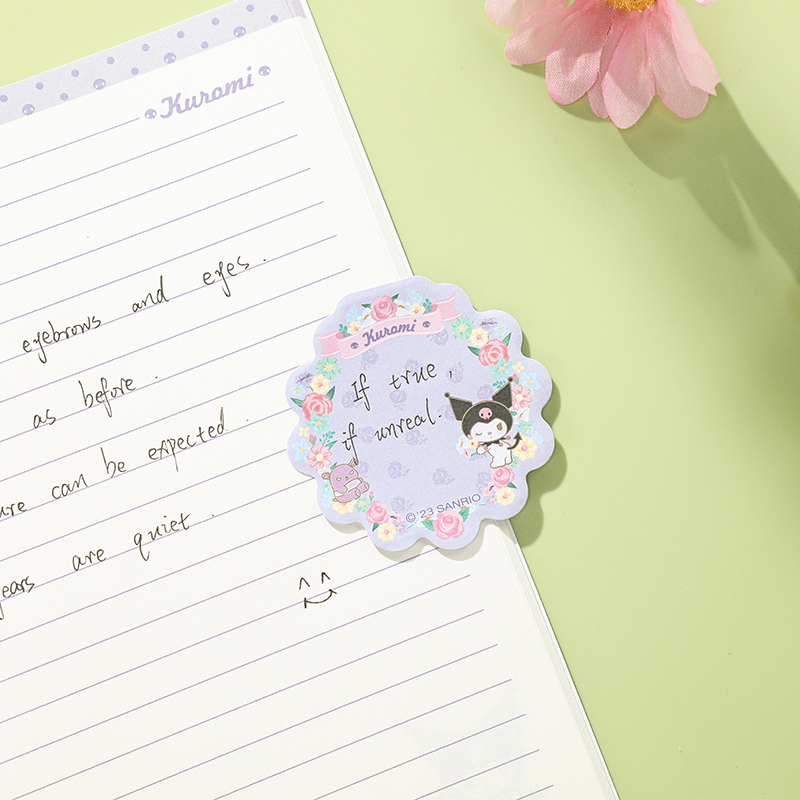 Kuromi
eyebrows and eyes.
as before.
can be expected.
ears are quiet.
Kuromi
If true,
if unreal.
©'23 SANRIO